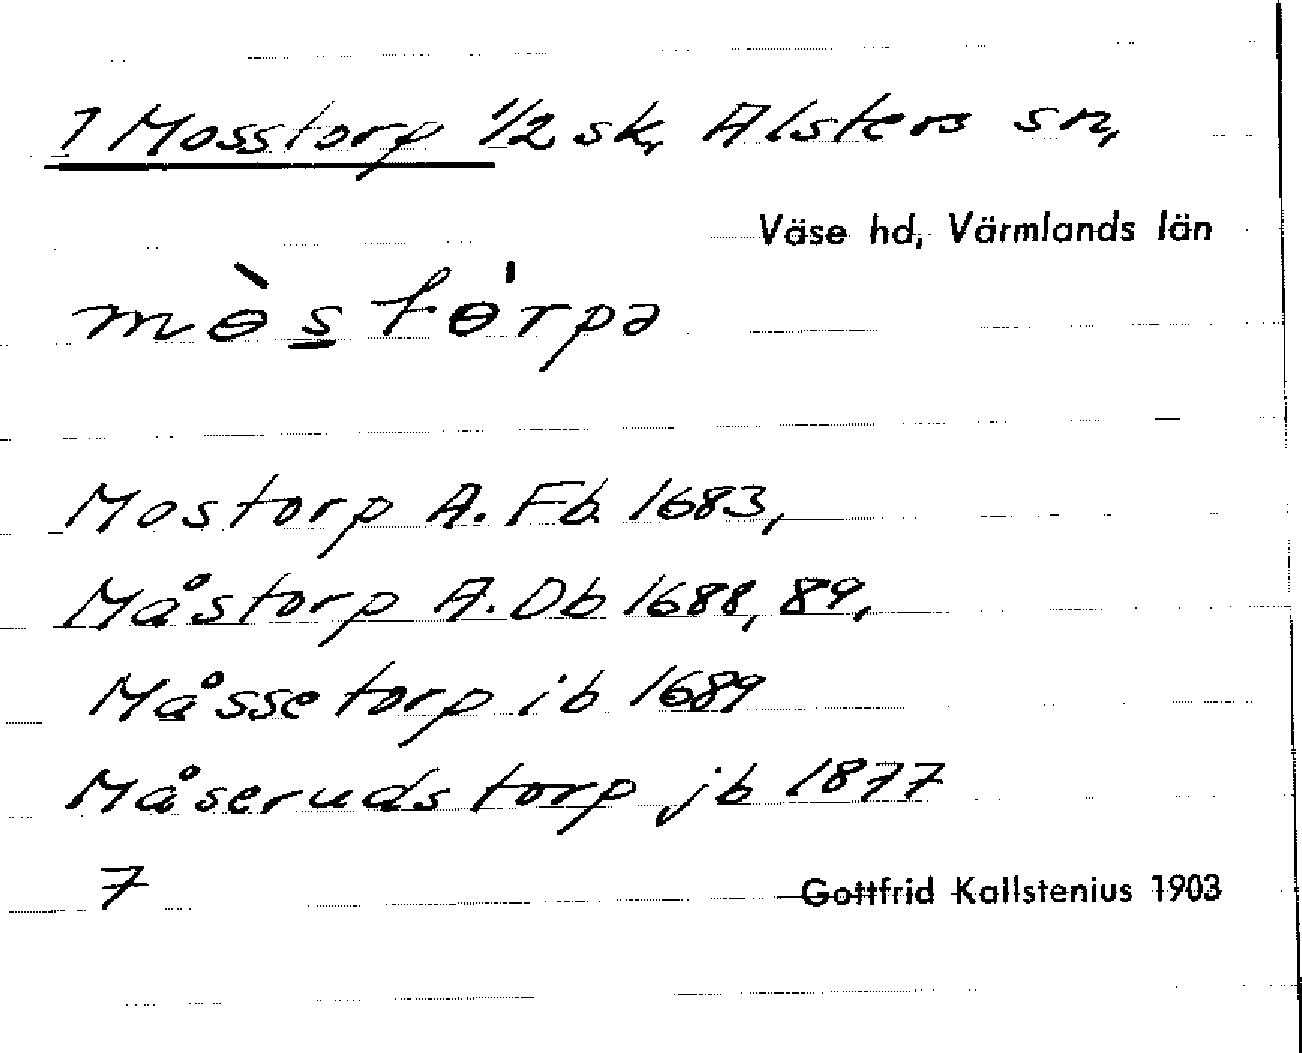 1 Mosstorp 1/2 sk, Alsters sn,
Väse hd, Värmlands län
mɵ̀s̲tɵ́rpə
Mostorp A. Fb. 1683,
Måstorp A. Db 1688, 89,
Måssetorp ib 1689
Måserudstorp jb 1877
7
Gottfrid Kallstenius 1903